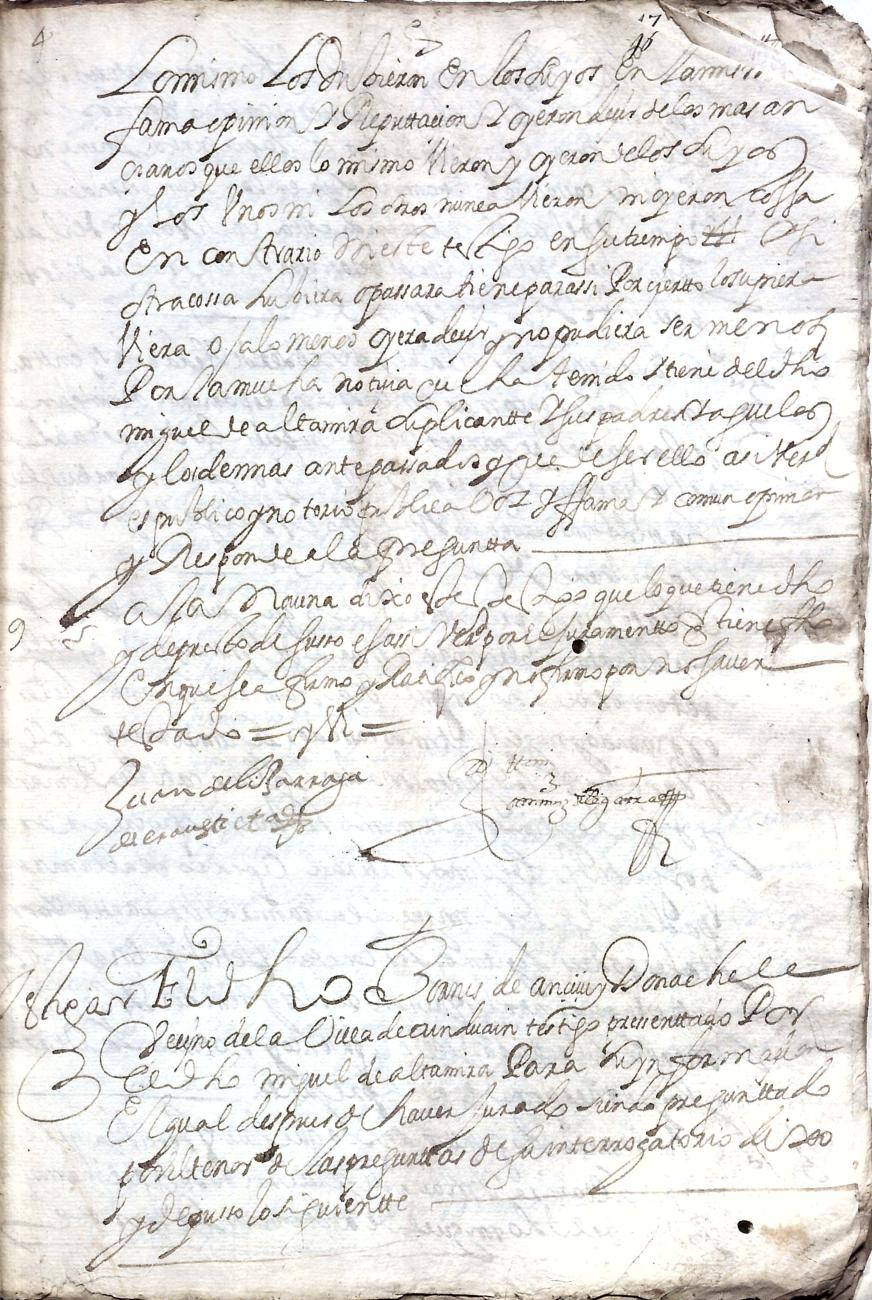 4
17
46
Lo mismo Los tubieron En los suyos En la mis
fama opinion y Reputtacion y oyeron decir de los mas an
cianos que ellos lo mismo Vieron y oyeron de los suyos
y Los Unos ni Los otros nunca Vieron ni oyeron cossa
En constrario ni este testigo en su tiempo si
otra cossa hubiera o passara tiene para ssi Por ciertto lo supiera
Viera o a lo menos oyera decir y no pudiera ser menos
Por la mucha noticia que ha tenido y tiene del dho
miguel de altamira suplicantte y sus padres y aguelos
y los demas antepassados y que de ser ello assi Verd
es publico y notorio publica Voz y ffama y comun opinion
y Responde a la preguntta
9
a la Novena dixo este testigo que lo que tiene dho
y depuesto de suso es assi Verd por el Juramentto que tiene fho
En que se afirmo y Ratifico y no firmo por no saver
testado = y Vi =
Juan de lizarraga
Ante mi
testigo
3
El dho Joanes de anciu y Donachele
Vecino de la Villa de testigo presenttado Por
El dho miguel de altamira Para su ynformacion
El qual despues de haver Jurado siendo preguntado
por el tenor de las preguntas de su interrogatorio dixo
y depusso lo siguientte